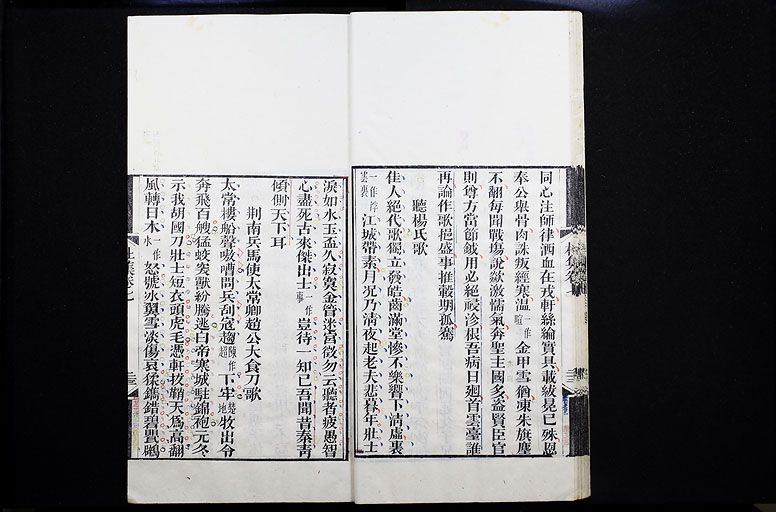 同心注師律洒血在戎軒絲綸實具載紱冕已殊恩
奉公舉骨肉誅叛經寒溫一作暄金甲雪猶凍朱旗塵
不翻每聞戰場說欻激懦氣奔聖主國多盜賢臣官
則尊方當節鉞用必絕祲沴根吾病日廻首雲臺誰
再論作歌挹盛事推轂期孤騫
聽楊氏歌
佳人絕代歌獨立發皓齒滿堂慘不樂響下淸虛裏
一作浮雲裏江城帶素月况乃淸夜起老夫悲暮年壯士
淚如水玉盃久寂寞金管迷宮徵勿云聽者疲愚智
心盡死古來傑出士一作事豈待一知己吾聞昔秦靑
傾側天下耳
荆南兵馬使太常卿趙公大食刀歌
太常樓船聲嗷嘈問兵刮寇趨陳作超下牢楚地牧出令
奔飛百艘猛蛟突獸紛騰逃白帝寒城駐錦袍元冬
示我胡國刀壯士短衣頭虎毛憑軒拔鞘天爲高翻
風轉日木一作水怒號冰翼雪淡傷哀猱鐫錯碧甖鸊
杜集卷七